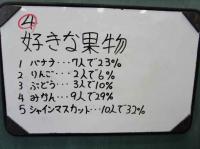 ④
好きな果物
1 バナナ…7人で23%
2 りんご…2人で6%
3 ぶどう…3人で10%
4 みかん…9人で29%
5 シャインマスカット…10人で32%